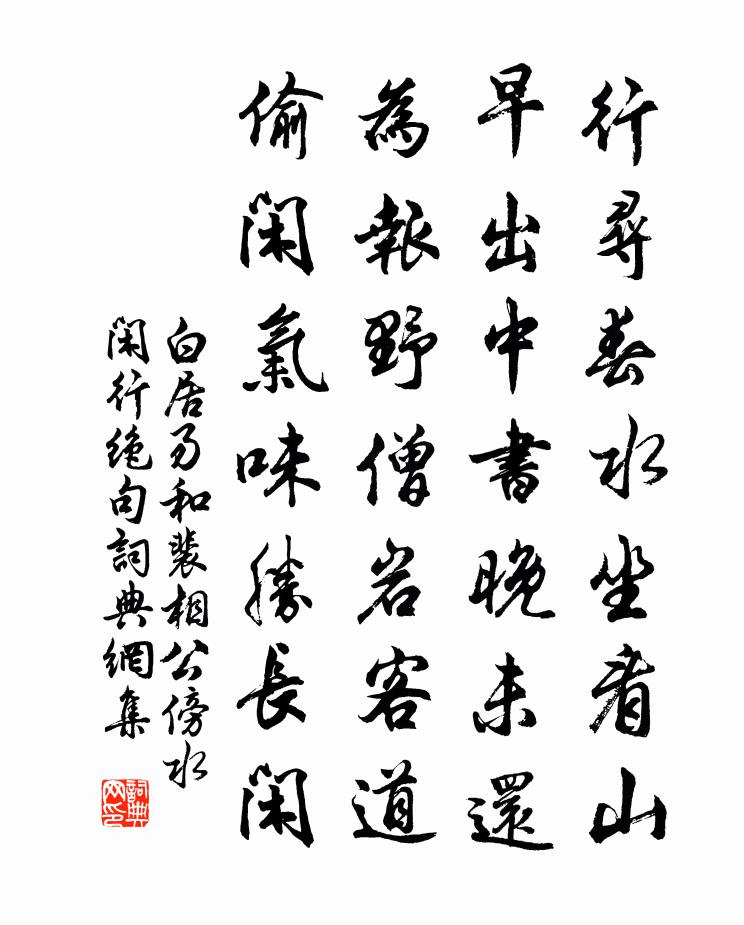 行尋春水坐看山
早出中書晚未還
為報野僧岩客道
偷閑氣味勝長閑
白居易和裴相公傍水
閑行绝句詞典網集
詞典
网印